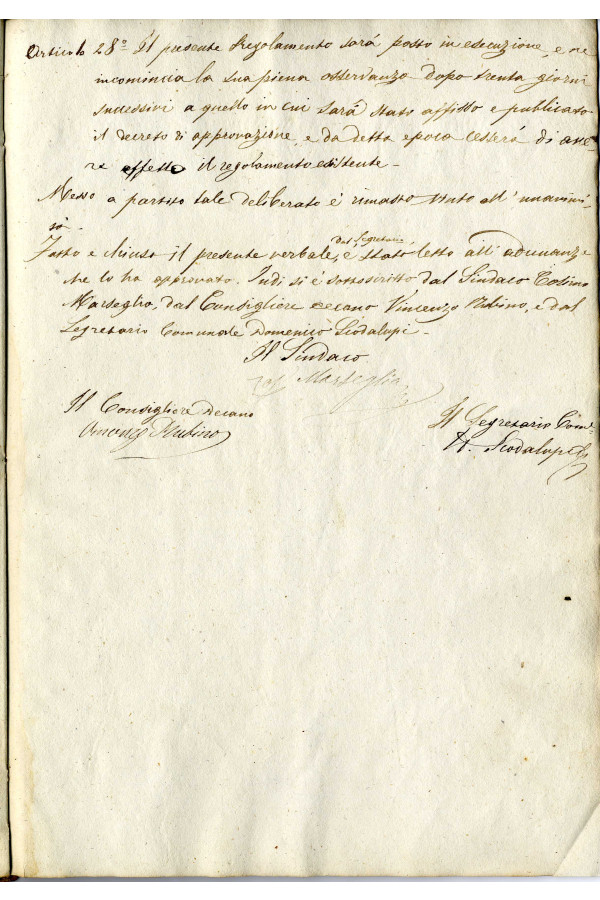 Articolo 28° Il presente Regolamento sarà posto in esecuzione, e ne
incomincia la sua piena osservanza dopo trenta giorni
successivi a quello in cui sarà stato affisso e publicato
il decreto di approvazione, e da detta epoca cesserà di ave=
re effetto il regolamento esistente -
Messo a partito tale deliberato è rimasto all' unanimi=
tà.
dal Segretario
Fatto e chiuso il presente verbale, è stato letto all' adunanza
che lo ha approvato. Indi si è sottoscritto dal Sindaco Cosimo
Marseglia, dal Consigliere decano Vincenzo Rubino, e dal
Segretario Comunale Domenico Scodalupi.
Il Sindaco
Marseglia
Il Consigliere Decano
Vincenzo Rubino
Il Segretario Com.e
D. Scodalupi